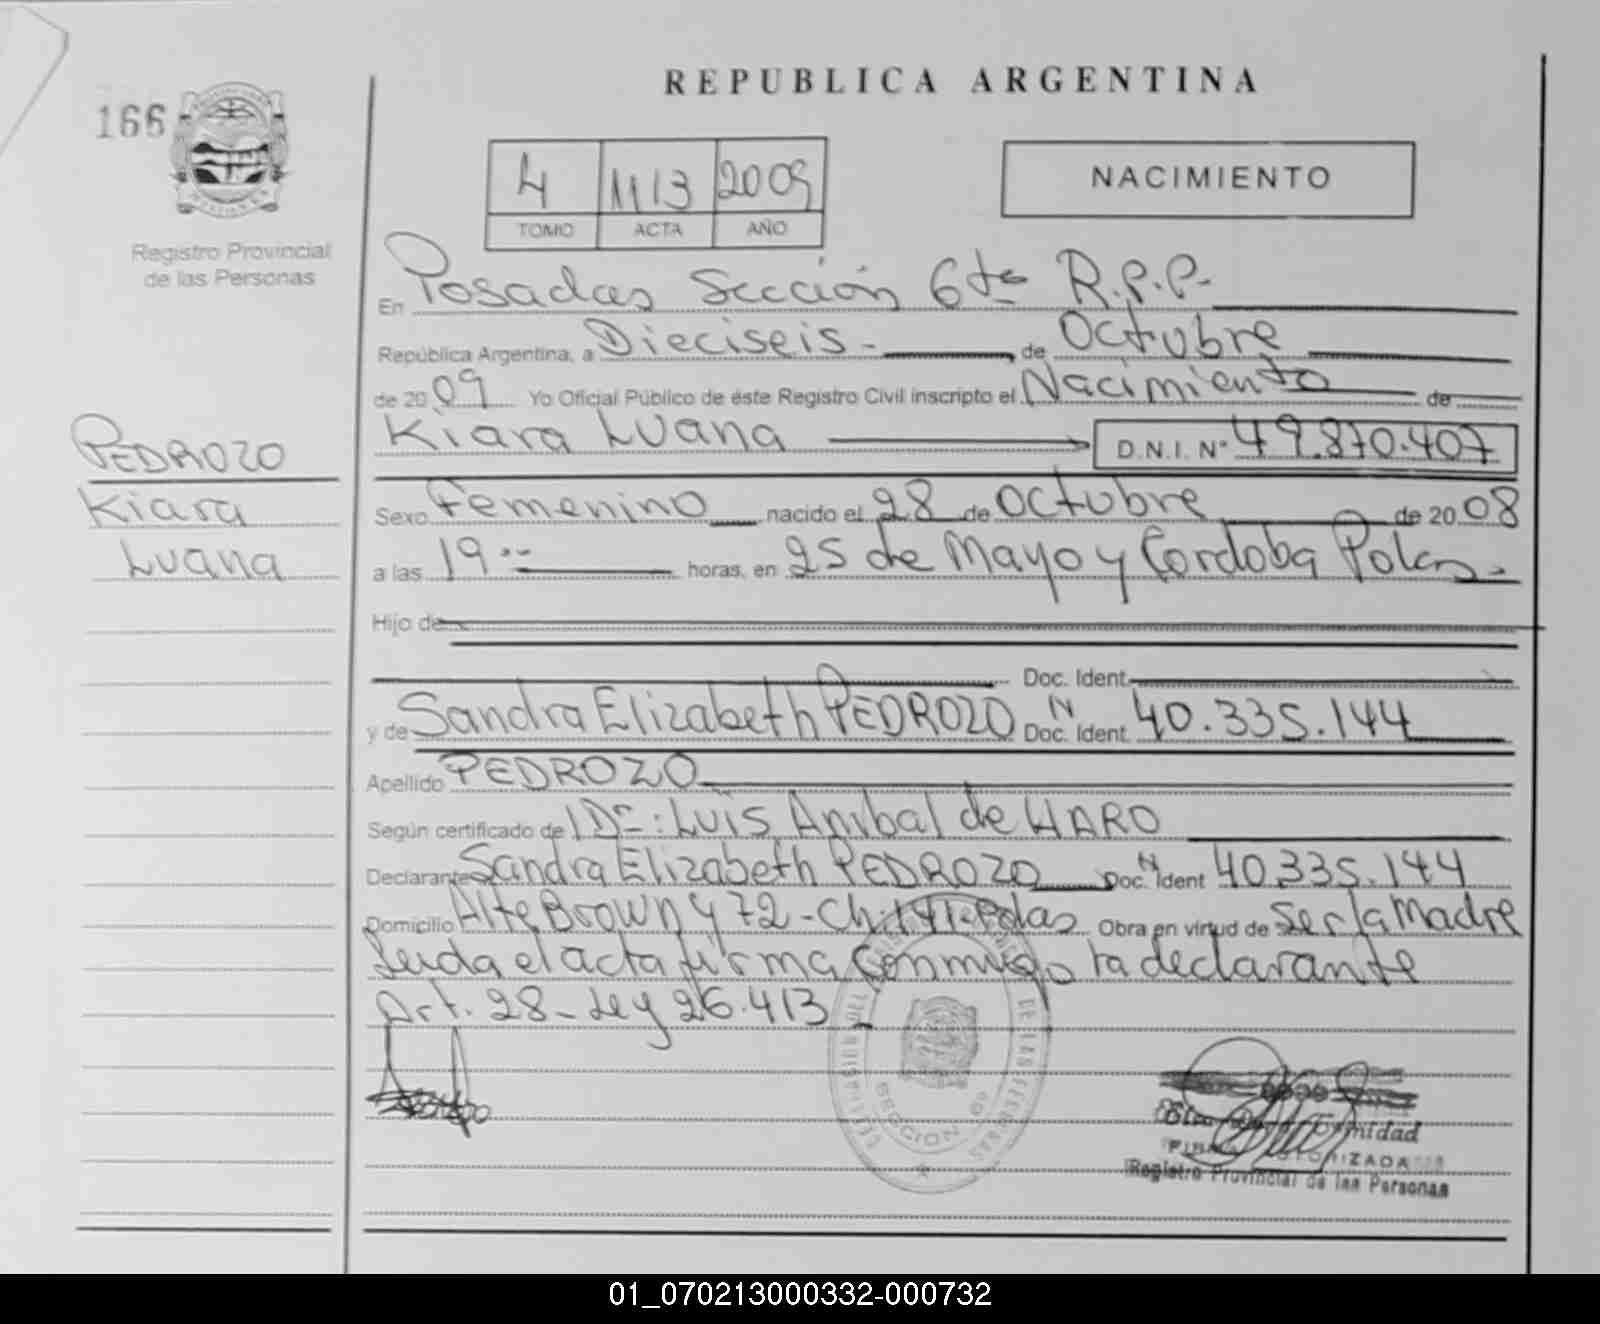 REPUBLICA ARGENTINA
166
4 1113 2009
TOMO ACTA AÑO
NACIMIENTO
Registro Provincial
de las Personas
En Posadas Sección 6ta R.P.P.
República Argentina, a Dieciseis - de Octubre
de 2009 Yo Oficial Público de éste Registro Civil inscripto el Nacimiento de
Kiara Luana D.N.I. N° 49.870.407
PEDROZO
Kiara
Luana
Sexo Femenino nacido el 28 de Octubre de 2008
a las 19 horas, en 25 de Mayo y Cordoba
Hijo de
Doc. Ident.
y de Sandra Elizabeth PEDROZO Doc. N Ident. 40.335.144
Apellido PEDROZO
Según certificado de Dr: Luis Anibal de HARO
Declarante Sandra Elizabeth PEDROZO Doc. N Ident 40.335.144
Domicilio Alte Brown y 72 - Ch: 141 - Pdas Obra en virtud de ser la Madre
Leida el acta firma conmigo la declarante
Art. 28 - Ley 26.413
SECCION 6ª
FIRMA AUTORIZADA
Registro Provincial de las Personas
01_070213000332-000732